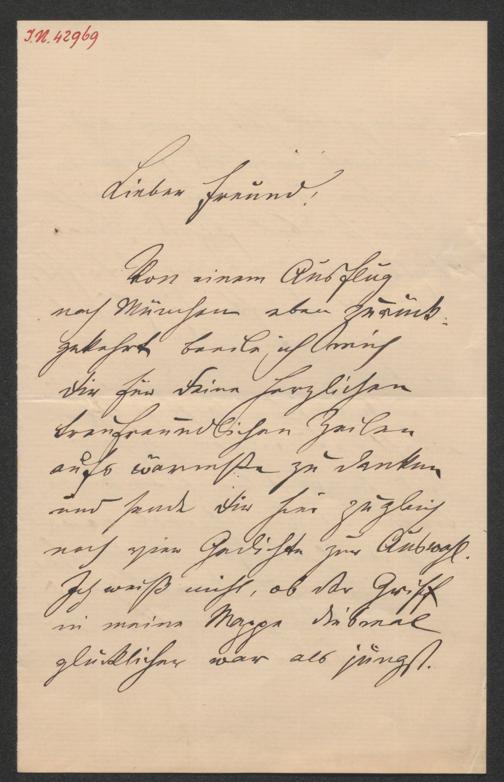 I.N. 42969
Lieber Freund!
Von einem Ausflug
nach München eben zurück-
gekehrt beeile ich mich
Dir für Deine herzlichen
treufreundlichen Zeilen
aufs wärmste zu danken
und sende Dir hier zugleich
noch vier Gedichte zur Auswahl.
Ich weiß nicht, ob der Griff
in meine Mappe diesmal
glücklicher war als jüngst.